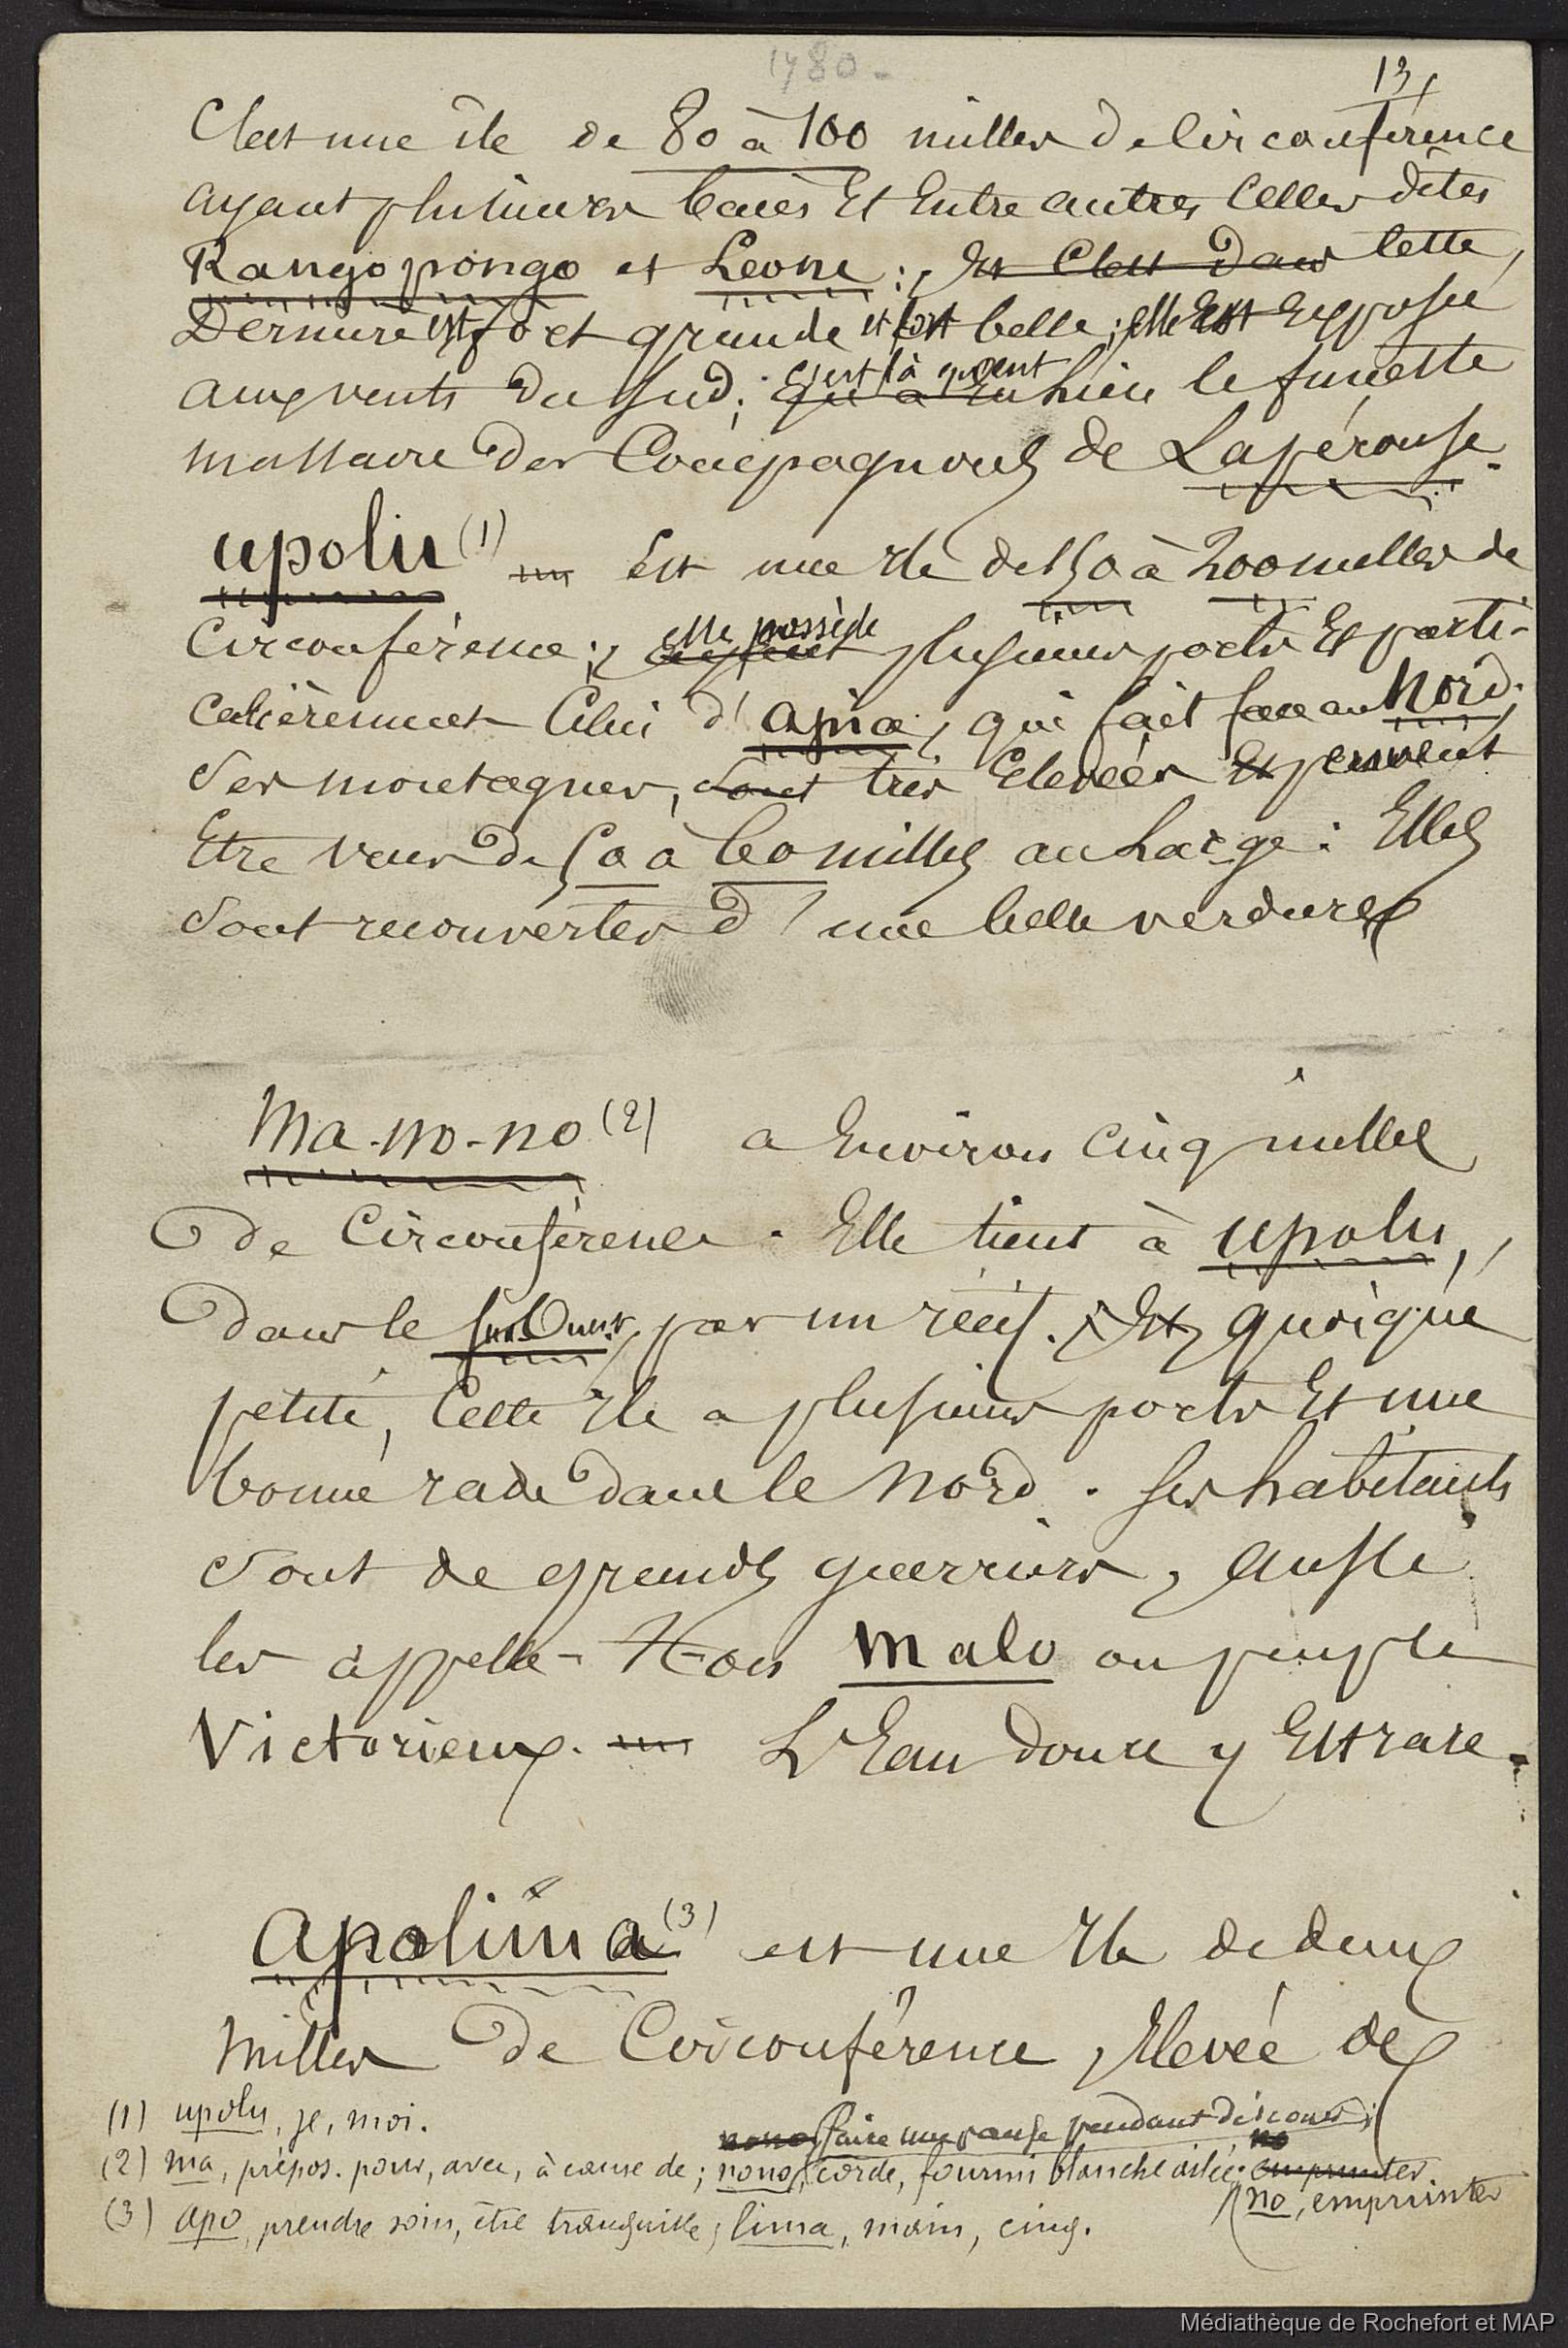 1780.
13
C'est une île de 80 à 100 milles de circonférence
ayant plusieurs baies et entre autres celles dites
Rangopongo et Léone : et c'est dans cette
dernière est fort grande et fort belle ; elle est exposée
aux vents du sud ; c'est là qu'eut lieu le funeste
massacre des Compagnons de Lapérouse.
upolu (1) est une île de 150 à 200 milles de
circonférence ; elle possède plusieurs ports et parti-
culièrement celui d'apia, qui fait face au Nord.
Ses montagnes, sont très élevées et peuvent
être vues de 50 à 60 milles au large : Elles
sont recouvertes d'une belle verdure
Ma-no-no (2) a environ cinq milles
de circonférence. Elle tient à upolu,
dans le par un récif. Et quoique
petite, cette île a plusieurs ports et une
bonne rade dans le Nord. Ses habitants
sont de grands guerriers, aussi
les appelle-t-on malo ou peuple
victorieux. L'Eau douce y est rare.
apolima (3) est une île de deux
milles de circonférence, élevée de
(1) upolu, je, moi.
nono, faire une pause pendant discours ;
(2) ma, prépos. pour, avec, à cause de ; nono, corde, fourmi blanche ailée ; no emprunter.
no, emprunter
(3) apo, prendre soin, être tranquille ; lima, main, cinq.
Médiathèque de Rochefort et MAP